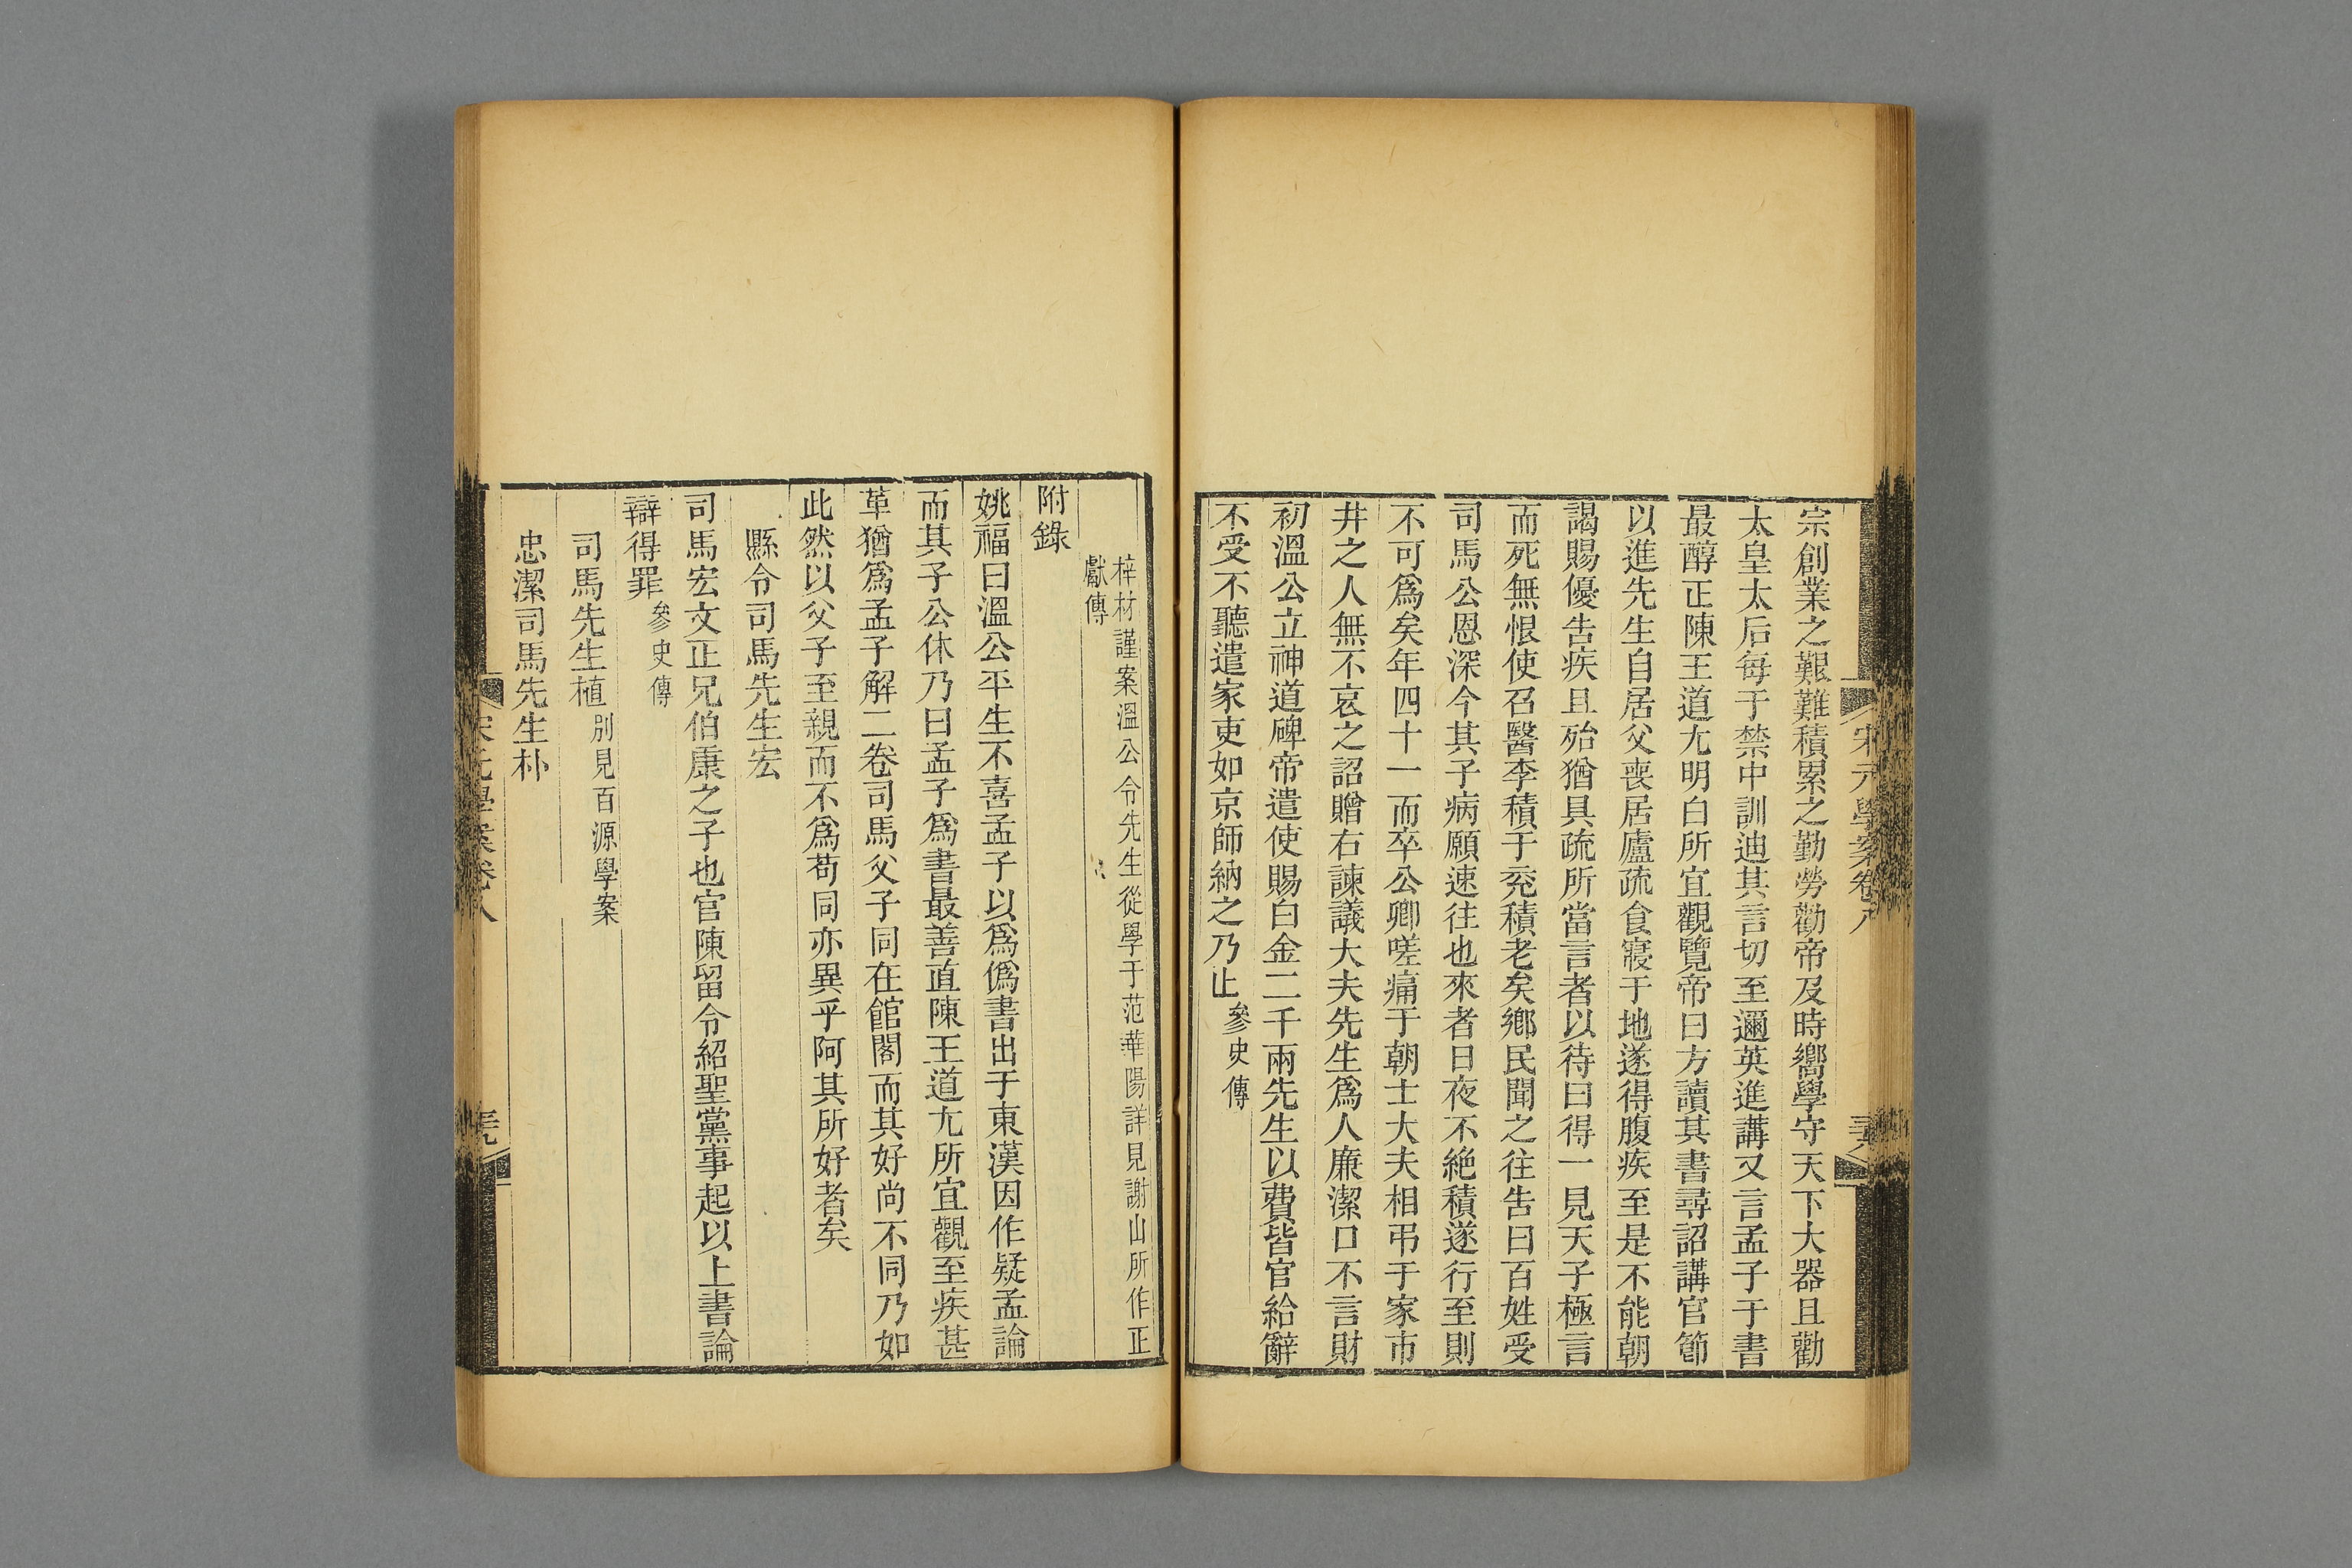 宋元學案卷八
宗創業之艱難積累之勤勞勸帝及時嚮學守天下大器且勸
太皇太后每于禁中訓迪其言切至邇英進講又言孟子于書
最醇正陳王道尢明白所宜觀覽帝曰方讀其書尋詔講官節
以進先生自居父喪居廬疏食寢于地遂得腹疾至是不能朝
謁賜優告疾且殆猶具疏所當言者以待曰得一見天子極言
而死無恨使召醫李積于兗積老矣鄉民聞之往告曰百姓受
司馬公恩深今其子病願速往也來者日夜不絕積遂行至則
不可爲矣年四十一而卒公卿嗟痛于朝士大夫相弔于家市
井之人無不哀之詔贈右諫議大夫先生爲人廉潔口不言財
初溫公立神道碑帝遣使賜白金二千兩先生以費皆官給辭
不受不聽遣家吏如京師納之乃止參史傳
梓材謹案溫公令先生從學于范華陽詳見謝山所作正
獻傳
附錄
姚福曰溫公平生不喜孟子以爲僞書出于東漢因作疑孟論
而其子公休乃曰孟子爲書最善直陳王道尢所宜觀至疾甚
革猶爲孟子解二卷司馬父子同在館閣而其好尚不同乃如
此然以父子至親而不爲苟同亦異乎阿其所好者矣
縣令司馬先生宏
司馬宏文正兄伯康之子也官陳留令紹聖黨事起以上書論
辯得罪參史傳
司馬先生植別見百源學案
忠潔司馬先生朴
宋元學案卷八